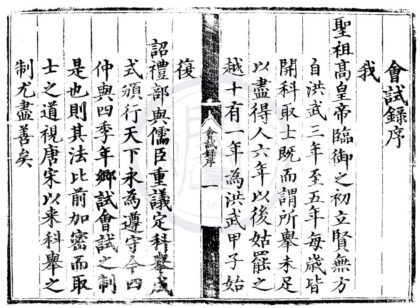 會試錄序
我
聖祖高皇帝臨御之初立賢無方
自洪武三年至五年每歲皆
開科取士既而謂所舉未足
以盡得人六年以後姑罷之
越十有一年為洪武甲子始
會試錄序
一
復
詔禮部與儒臣重議定科舉成
式頒行天下永為遵守今四
仲與四季年鄉試會試之制
是也則其法比前加密而取
士之道視唐宋以來科舉之
制尤盡善矣